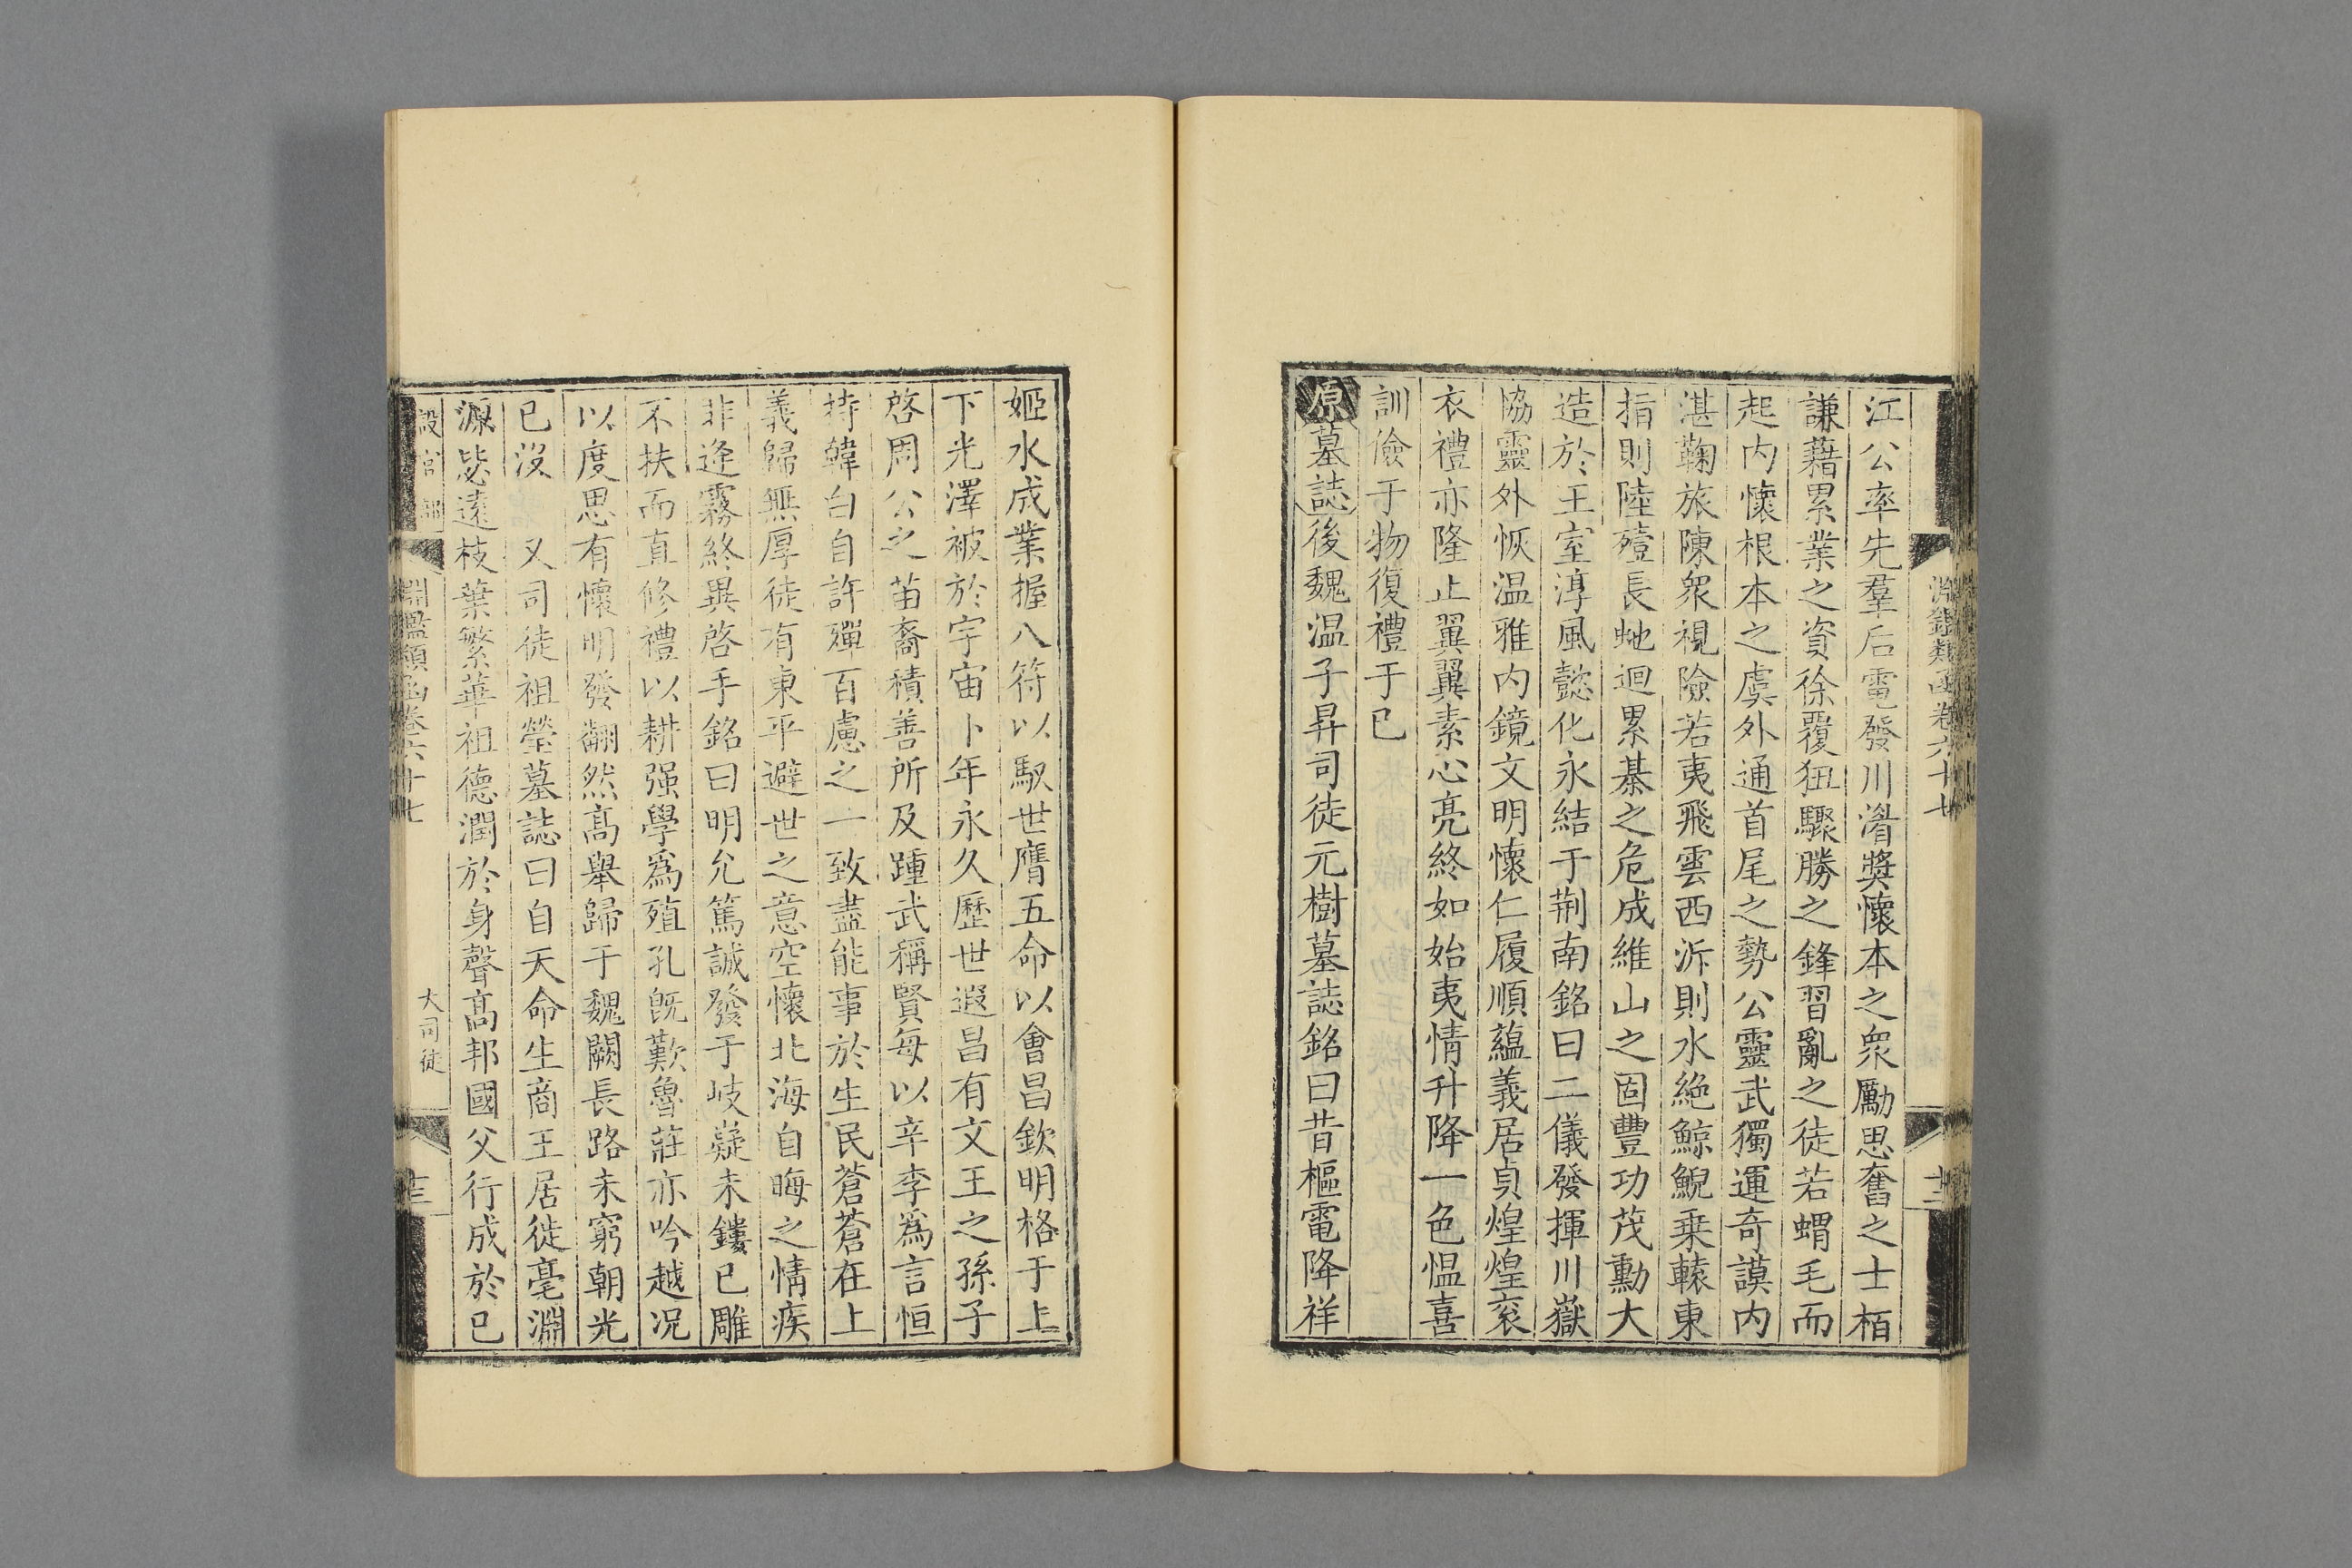 江公率先羣后電發川濳奬懷本之衆勵思奮之士栢
謙藉累業之資徐覆狃驟勝之鋒習亂之徒若蝟毛而
起内懷根本之虞外通首尾之勢公靈武獨運奇謨内
湛鞠旅陳衆視險若夷飛雲西泝則水絶鯨鯢乗轅東
指則陸殪長虵迴累棊之危成維山之固豐功茂勳大
造於王室淳風懿化永結于荆南銘曰二儀發揮川嶽
協靈外恢温雅内鏡文明懷仁履順藴義居貞煌煌衮
衣禮亦隆止翼翼素心亮終如始夷情升降一色愠喜
訓儉于物復禮于已
原墓誌後魏温子昇司徒元樹墓誌銘曰昔樞電降祥
淵鑑類函卷六十七
十二
姬水成業握八符以馭世膺五命以會昌欽明格于上
下光澤被於宇宙卜年永久歷世遐昌有文王之孫子
啓周公之苗裔積善所及踵武稱賢每以辛李爲言恒
持韓白自許殫百慮之一致盡能事於生民蒼蒼在上
義歸無厚徒有東平避世之意空懷北海自晦之情疾
非逢霧終異啓手銘曰明允篤誠發于岐嶷未鏤已雕
不扶而直修禮以耕强學爲殖孔旣歎魯莊亦吟越况
以度思有懷明發翻然髙舉歸于魏闕長路未窮朝光
已沒　又司徒祖瑩墓誌曰自天命生商王居徙亳淵
源毖遠枝葉繁華祖德潤於身聲髙邦國父行成於已
設官部
淵鑑類函卷六十七
大司徒
十三